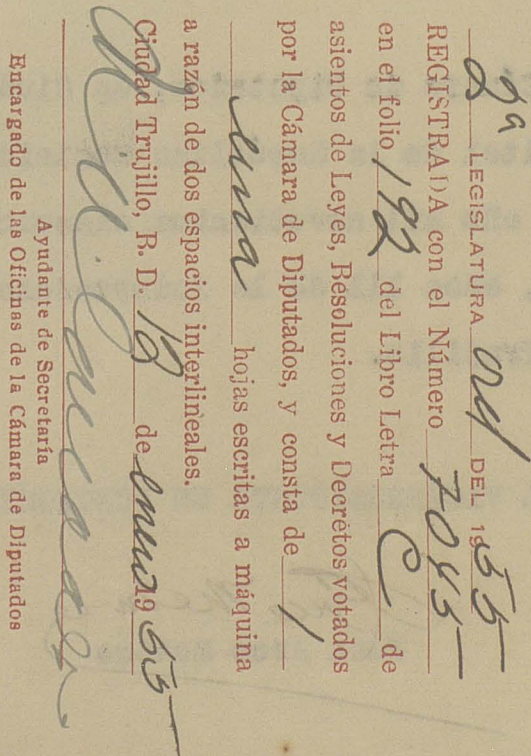 2ª LEGISLATURA ord DEL 1955
REGISTRADA con el Número 7045
en el folio 192 del Libro Letra C de
asientos de Leyes, Resoluciones y Decretos votados
por la Cámara de Diputados, y consta de 1
una hojas escritas a máquina
a razón de dos espacios interlineales.
Ciudad Trujillo, R. D. 18 de enero 1955
Ayudante de Secretaría
Encargado de las Oficinas de la Cámara de Diputados